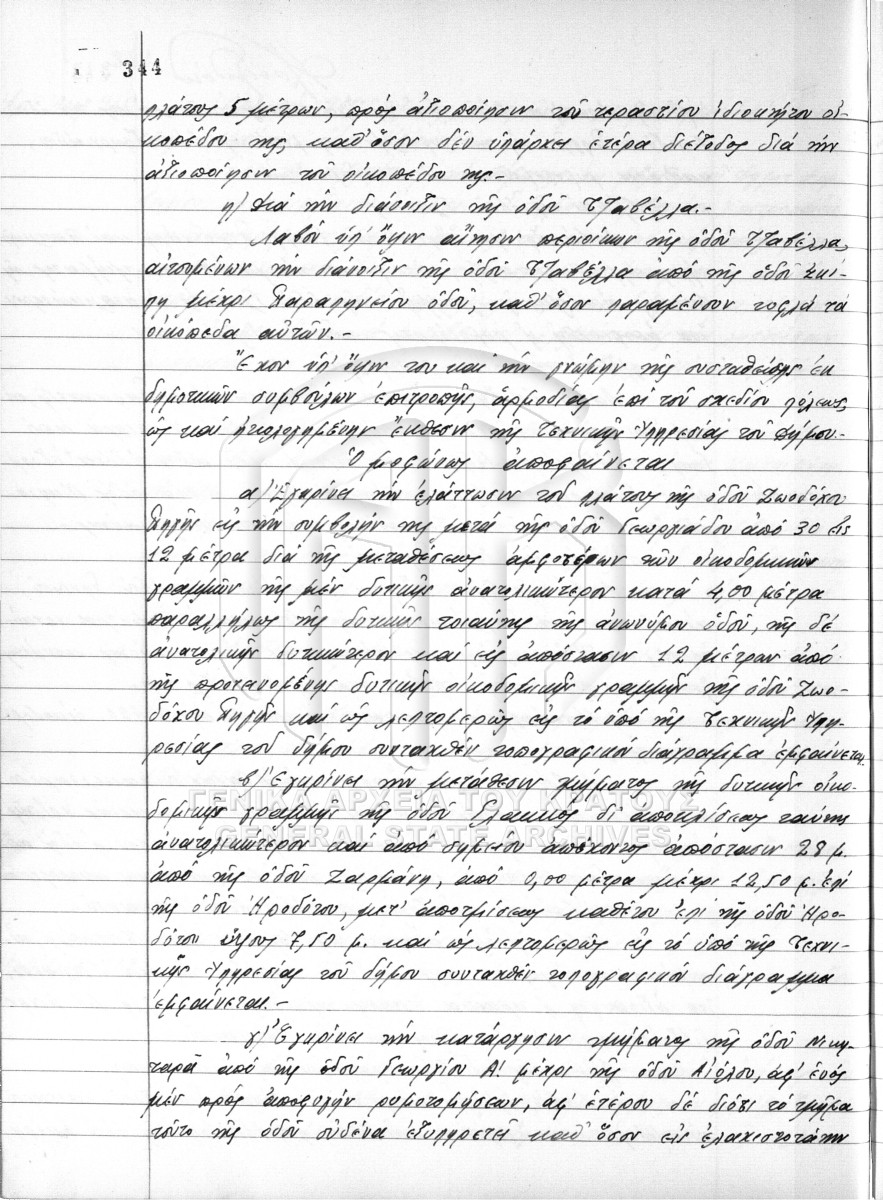 344
πλάτους 5 μέτρων, πρός ἀξιοποίησιν τοῦ τεραστίου ἰδιοκτήτου οἰ-
κοπέδου της, καθ' ὅσον δέν ὑπάρχει ἑτέρα διέξοδος διά τήν
ἀξιοποίησιν τοῦ οἰκοπέδου της.-
η) Διά τήν διάνοιξιν τῆς ὁδοῦ Τζαβέλλα.-
Λαβόν ὑπ' ὄψιν αἴτησιν περιοίκων τῆς ὁδοῦ Τζαβέλλα,
αἰτουμένων τήν διάνοιξιν τῆς ὁδοῦ Τζαβέλλα ἀπό τῆς ὁδοῦ
μέχρι ὁδοῦ, καθ' ὅσον παραμένουν τυφλά τά
οἰκόπεδα αὐτῶν.-
Ἔχον ὑπ' ὄψιν του καί τήν γνώμην τῆς συσταθείσης ἐκ
δημοτικῶν συμβούλων ἐπιτροπῆς, ἁρμοδίας ἐπί τοῦ σχεδίου πόλεως,
ὡς καί ᾐτιολογημένην ἔκθεσιν τῆς Τεχνικῆς Ὑπηρεσίας τοῦ Δήμου.-
Ὁμοφώνως ἀποφαίνεται
α) Ἐγκρίνει τήν ἐλάττωσιν τοῦ πλάτους τῆς ὁδοῦ Ζωοδόχου
Πηγῆς εἰς τήν συμβολήν της μετά τῆς ὁδοῦ Γεωργιάδου ἀπό 30 εἰς
12 μέτρα διά τῆς μεταθέσεως ἀμφοτέρων τῶν οἰκοδομικῶν
γραμμῶν τῆς μέν δυτικῆς ἀνατολικώτερον κατά 4,00 μέτρα
παραλλήλως τῆς δυτικῆς τοιαύτης τῆς ἀνωνύμου ὁδοῦ, τῆς δέ
ἀνατολικῆς δυτικώτερον καί εἰς ἀπόστασιν 12 μέτρων ἀπό
τῆς προτεινομένης δυτικῆς οἰκοδομικῆς γραμμῆς τῆς ὁδοῦ Ζωο-
δόχου Πηγῆς καί ὡς λεπτομερῶς εἰς τό ὑπό τῆς Τεχνικῆς Ὑπη-
ρεσίας τοῦ δήμου συνταχθέν τοπογραφικόν διάγραμμα ἐμφαίνεται.
β) Ἐγκρίνει τήν μετάθεσιν τμήματος τῆς δυτικῆς οἰκο-
δομικῆς γραμμῆς τῆς ὁδοῦ δι' ταύτης
ἀνατολικώτερον καί ἀπό σημείου ἀπέχοντος ἀπόστασιν 28 μ.
ἀπό τῆς ὁδοῦ Ζαρμάνη, ἀπό 0,00 μέτρα μέχρι 12,50 μ. ἐπί
τῆς ὁδοῦ Ἡροδότου, μετ' ἀποτμήσεως καθέτου ἐπί τῆς ὁδοῦ Ἡρο-
δότου ὕψους 7,50 μ. καί ὡς λεπτομερῶς εἰς τό ὑπό τῆς Τεχνι-
κῆς Ὑπηρεσίας τοῦ δήμου συνταχθέν τοπογραφικόν διάγραμμα
ἐμφαίνεται.-
γ) Ἐγκρίνει τήν κατάργησιν τμήματος τῆς ὁδοῦ Νικη-
ταρᾶ ἀπό τῆς ὁδοῦ Γεωργίου Α! μέχρι τῆς ὁδοῦ Αἰόλου, ἀφ' ἑνός
μέν πρός ἀποφυγήν ρυμοτομήσεων, ἀφ' ἑτέρου δέ διότι τό τμῆμα
τοῦτο τῆς ὁδοῦ οὐδένα ἐξυπηρετεῖ καθ' ὅσον εἰς ἐλαχιστοτάτην
ΓΕΝΙΚΑ ΑΡΧΕΙΑ ΤΟΥ ΚΡΑΤΟΥΣ
GENERAL STATE ARCHIVES